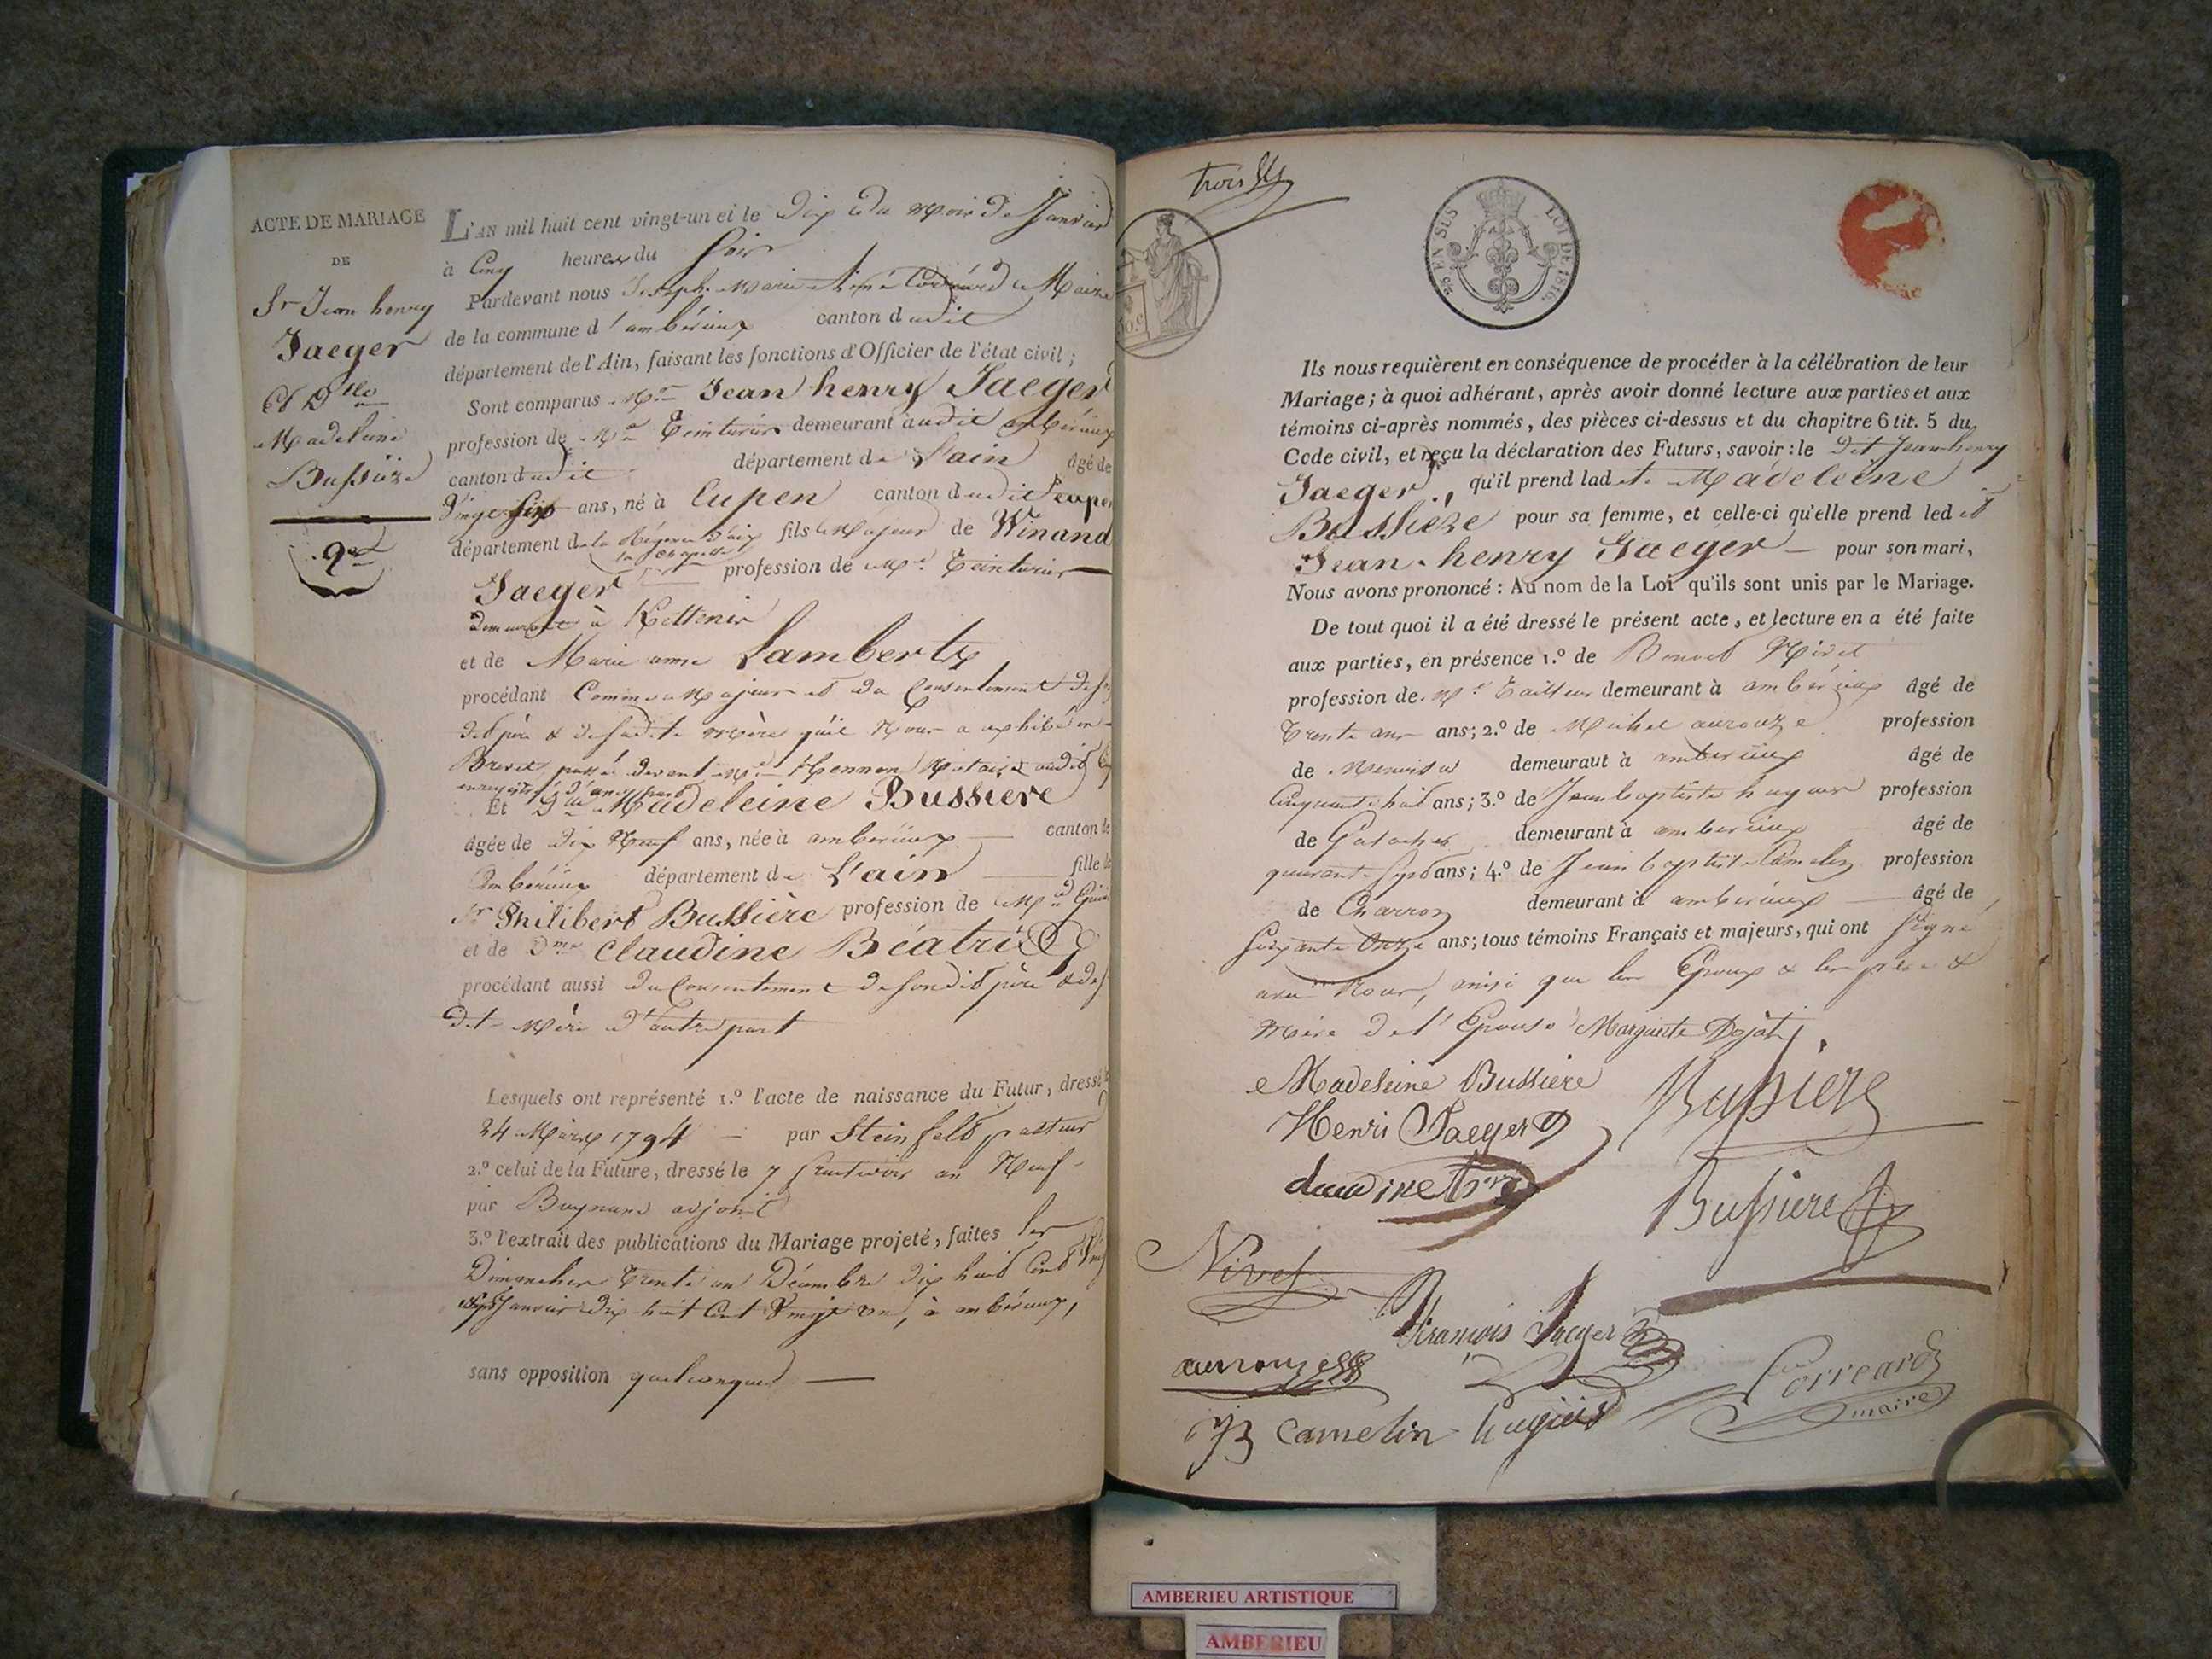 ACTE DE MARIAGE
DE
Sr Jean henry
Jaeger
Et Dlle
Madeleine
Bussière
2e
L'AN mil huit cent vingt-un et le dix du mois de Janvier
à Cinq heures du Soir
Pardevant nous Joseph Marie Aimé Corréard Maire
de la commune d'ambérieux canton dudit
département de l'Ain, faisant les fonctions d'Officier de l'état civil;
Sont comparus Mr Jean henry Jaeger
profession de Md Teinturier demeurant audit ambérieux
canton dudit département de L'ain âgé de
Vingt six ans, né à Eupen canton dudit Eupen
département de la Régence d'aix fils Majeur de Winand
la Chapelle
Jaeger profession de Md Teinturier
demeurant à Kettenis
et de Marie anne Lambertz
procédant Comme Majeur et du Consentement de
dit père & de sadite mère qu'il Nous a exhibé en
Brevet passé devant Me Hennen Notaire audit
enregistré d'une part
Et Dlle Madeleine Bussiere
âgée de dix Neuf ans, née à ambérieux canton de
Ambérieux département de L'ain fille de
Sr Philibert Bussière profession de Md
et de Dme Claudine Béatrix
procédant aussi du Consentement de sondit père & de
dite Mère d'autre part
Lesquels ont représenté 1.º l'acte de naissance du Futur, dressé
24 Mars 1794 par Steinfeld pasteur
2.º celui de la Future, dressé le 7 fructidor an Neuf
par adjoint
3.º l'extrait des publications du Mariage projeté, faites les
Dimanches trente un Décembre dix huit Cent Vingt
Sept Janvier dix huit Cent Vingt un, à ambérieux,
sans opposition quelconque
trois
25 EN SUS LOI DE 1816.
50.c
Ils nous requièrent en conséquence de procéder à la célébration de leur
Mariage; à quoi adhérant, après avoir donné lecture aux parties et aux
témoins ci-après nommés, des pièces ci-dessus et du chapitre 6 tit. 5 du
Code civil, et reçu la déclaration des Futurs, savoir: le dit Jean henry
Jaeger, qu'il prend ladite Madeleine
Bussière pour sa femme, et celle-ci qu'elle prend ledit
Jean henry Jaeger pour son mari,
Nous avons prononcé: Au nom de la Loi qu'ils sont unis par le Mariage.
De tout quoi il a été dressé le présent acte, et lecture en a été faite
aux parties, en présence 1.º de Benoit Nivet
profession de Md Tailleur demeurant à ambérieux âgé de
Trente ans; 2.º de Michel aurouze profession
de Menuisier demeuraut à ambérieux âgé de
Cinquante huit ans; 3.º de Jean baptiste hugues profession
de demeurant à ambérieux âgé de
quarante Sept ans; 4.º de Jean baptiste Camelin profession
de Charron demeurant à ambérieux âgé de
Soixante Onze ans; tous témoins Français et majeurs, qui ont Signé
avec Nous, ainsi que les Epoux & les père &
Mère de l'Epouse Marguite Dojat
Madeleine Bussiere Bussiere
Henri Jaeger
Bussiere
Nivet
François Jaeger
aurouze
Corréard
maire
JB Camelin hugues
AMBERIEU ARTISTIQUE
AMBERIEU